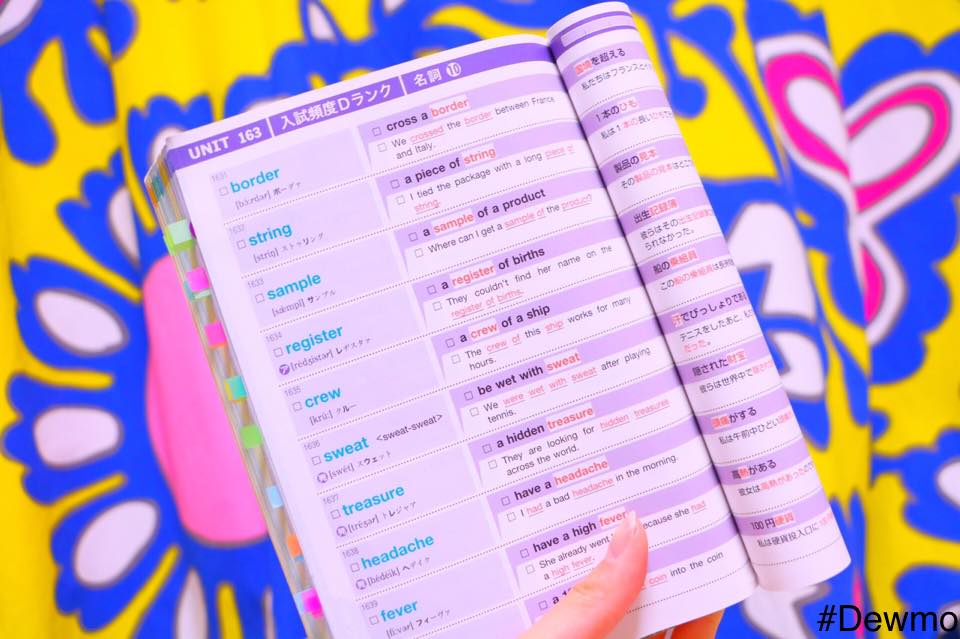 UNIT 163 入試頻度Dランク 名詞⑩
1631
border
[bɔ́ːrdər] ボーダァ
cross a border
We crossed the border between France
and Italy.
1632
string
[stríŋ] ストゥリング
a piece of string
I tied the package with a long piece of
string.
1633
sample
[sǽmpl] サンプル
a sample of a product
Where can I get a sample of the product?
1634
register
[rédʒistər] レヂスタァ
a register of births
They couldn't find her name on the
register of births.
1635
crew
[krúː] クルー
a crew of a ship
The crew of this ship works for many
hours.
1636
sweat <sweat-sweat>
[swét] スウェット
be wet with sweat
We were wet with sweat after playing
tennis.
1637
treasure
[tréʒər] トゥレジャァ
a hidden treasure
They are looking for hidden treasures
across the world.
1638
headache
[hédèik] ヘデイク
have a headache
I had a bad headache in the morning.
1639
fever
[fíːvər] フィーヴァ
have a high fever
She already went because she had
a high fever.
coin into the coin
国境を超える
私たちはフランスと
1本のひも
私は1本の長いひも
製品の見本
その製品の見本はどこ
出生記録簿
彼らはその出生記録簿
られなかった。
船の乗組員
この船の乗組員は長
汗でびっしょりであ
テニスをしたあと、私
だった。
隠された財宝
彼らは世界中で
頭痛がする
私は午前中ひどい
高熱がある
彼女は高熱があったの
100円硬貨
私は硬貨投入口に
#Dewmo